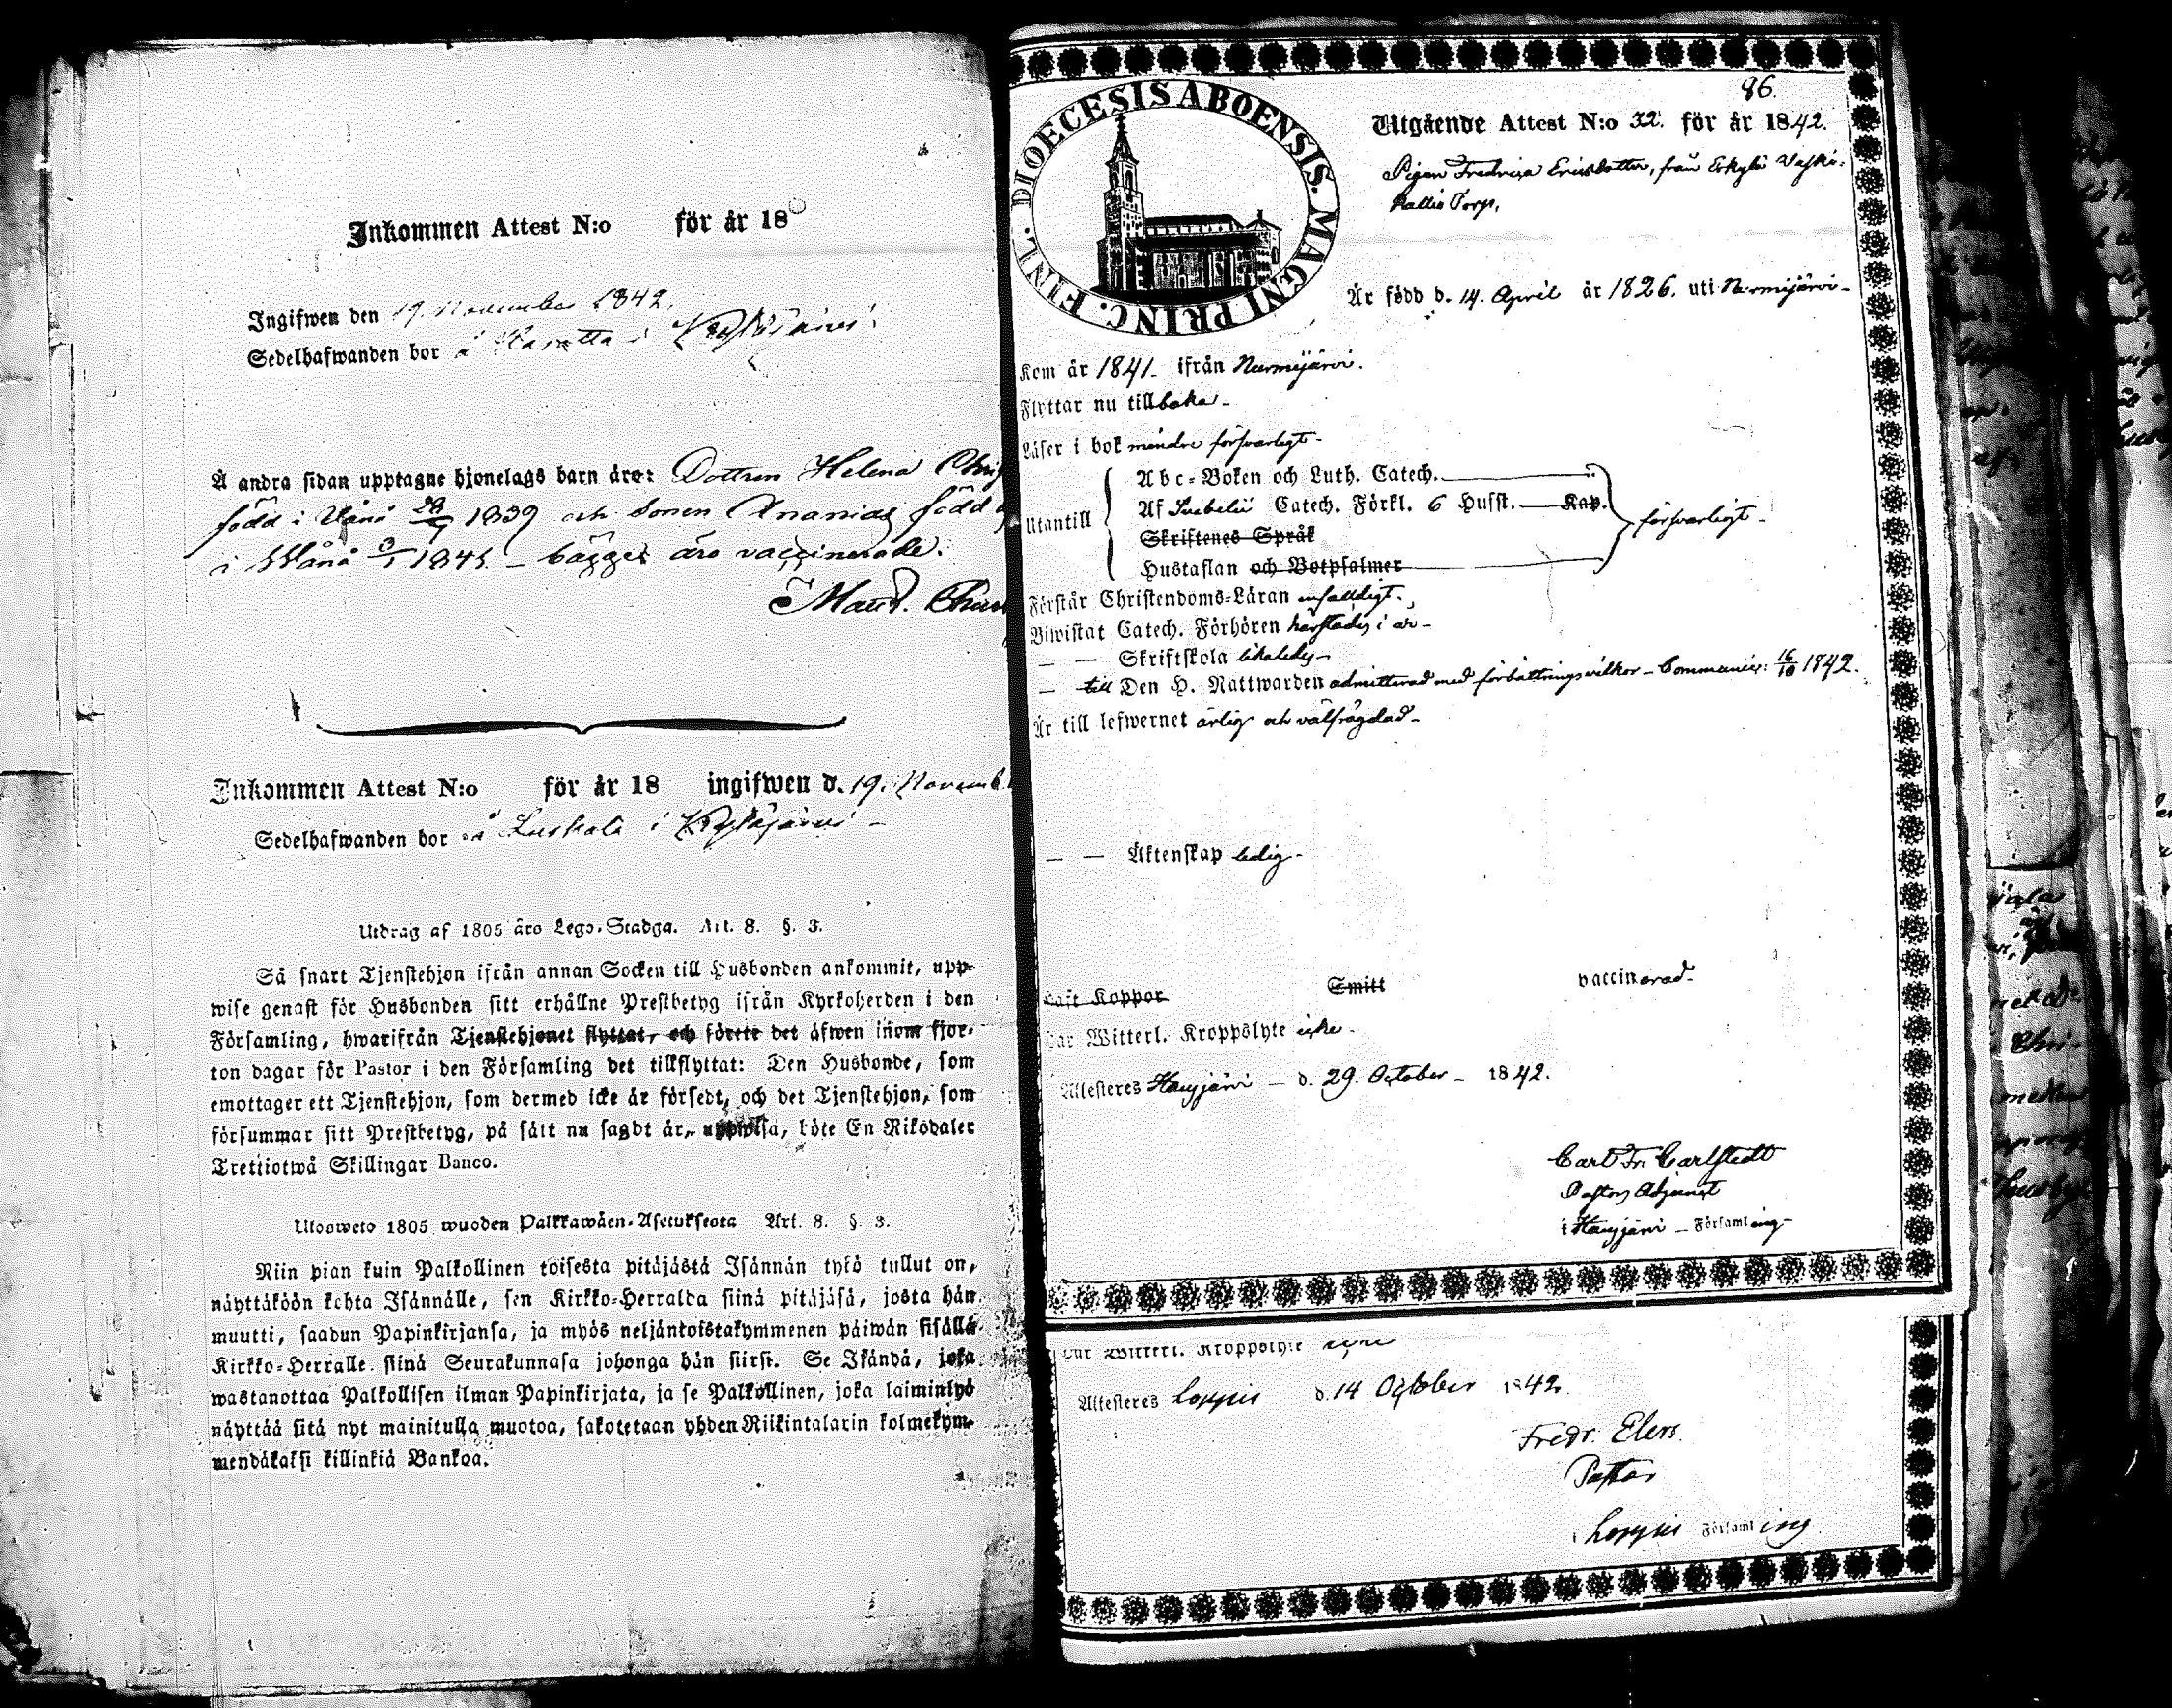 Inkommen Attest N:o för år 18
Ingifwen den 19. November 1842.
Sedelhafwanden bor å i Kytäjärvi.
Å andra sidan upptagne hjonelags barn äro: Dottren Helena
född i Wånå 1839 och Sonen Ananias född
i Wånå 1841 – bägge äro vaccinerade.
Inkommen Attest N:o för år 18 ingifwen d. 19. Novemb
Sedelhafwanden bor å i Kytäjärvi –
Utdrag af 1805 års Lego-Stadga. Art. 8. §. 3.
Så snart Tjenstehjon ifrån annan Socken till Husbonden ankommit, upp-
wise genast för Husbonden sitt erhållne Prestbetyg ifrån Kyrkoherden i den
Församling, hwarifrån Tjenstehjonet flyttat, och förete det äfwen inom fjor-
ton dagar för Pastor i den Församling det tillflyttat: Den Husbonde, som
emottager ett Tjenstehjon, som dermed icke är försedt, och det Tjenstehjon, som
försummar sitt Prestbetyg, på sätt nu sagdt är, uppwisa, böte En Riksdaler
Trettiotwå Skillingar Banco.
Ulosweto 1805 wuoden Palkkawäen-Asetuksesta Art. 8. §. 3.
Niin pian kuin Palkollinen toisesta pitäjästä Isännän tykö tullut on,
näyttäköön kohta Isännälle, sen Kirkko-Herralda siinä pitäjäsä, josta hän
muutti, saadun Papinkirjansa, ja myös neljäntoistakymmenen päiwän sisällä
Kirkko-Herralle siinä Seurakunnasa johonga hän siirsi. Se Isändä, joka
wastanottaa Palkollisen ilman Papinkirjata, ja se Palkollinen, joka laiminlyö
näyttää sitä nyt mainitulla muotoa, sakotetaan yhden Riikintalarin kolmekym-
mendäkaksi killinkiä Bankoa.
96.
DIOECESIS ABOENSIS. MAGNI PRINC. FINL.
Utgående Attest N:o 32. för år 1842.
Pigan Fredrica Ericsdotter, från Erkylä
kallio Torp,
Är född d. 14. April år 1826. uti Nurmijärvi –
Kom år 1841 – ifrån Nurmijärvi.
Flyttar nu tillbaka –
Läser i bok mindre försvarligt –
Utantill
Abc-Boken och Luth. Catech.
Af Svebelii Catech. Förkl. 6 Hufst. Kap.
Skriftenes Språk
Hustaflan och Botpsalmer
försvarligt –
Förstår Christendoms-Läran enfalldigt.
Biwistat Catech. Förhören härstädes i år –
— — Skriftskola likaledes –
— till Den H. Nattwarden admitterad med förbättringsvilkor – Communic: 16/10 1842.
Är till lefwernet ärlig och välfrägdad –
— — Äktenskap ledig –
Haft Koppor Smitt vaccinerad –
Har Witterl. Kroppslyte icke –
Attesteres Hausjärvi – d. 29. October – 1842.
Carl Fr. Carlstedt
Pastors Adjunct
i Hausjärvi – Församling –
Har Witterl. Kroppslyte
Attesteres Loppis d. 14 October 1842.
Fredr. Elers.
Pastor
i Loppis Församling